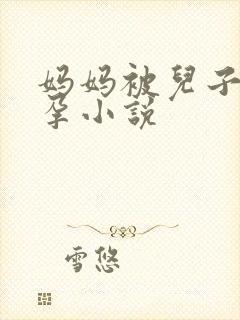 妈妈被兒子
孕小説
雪悠